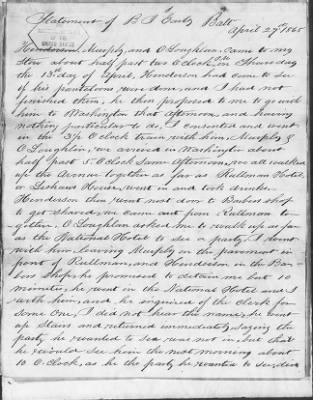 Statement of B J Early Balt
April 29th 1865
Henderson, Murphy, and O'Laughlan, came to my
Store about half past two O'Clock P.M on Thursday
the 13th day of April. Henderson had come to see
if his pantaloons were done, and I had not
finished them, he then proposed to me to go with
him to Washington that afternoon, and having
nothing particular to do, I consented and went
in the 3½ O'Clock train with him, Murphy &
O'Laughlan, we arrived in Washington about
half past 5 O'Clock same afternoon, we all walked
up the Avenue together as far as Rullman Hotel
or Lichaus House, went in and took drinks.
Henderson then went next door to Barbers shop
to get shaved, we came out from Rullman to-
gether, O'Laughlan asked me to walk up as far
as the National Hotel to see a party, I went
with him, leaving Murphy on the pavement in
front of Rullmans, and Henderson in the Bar-
bers Shop, he promised to detain me but 10
minutes, he went in the National Hotel and I
with him, and he inquired of the Clerk for
some One, I did not hear the name, he went
up Stairs and returned immediately, saying the
party he wanted to see was not in, but that
he would see him the next morning about
10 O'Clock, as he the party he wanted to see,